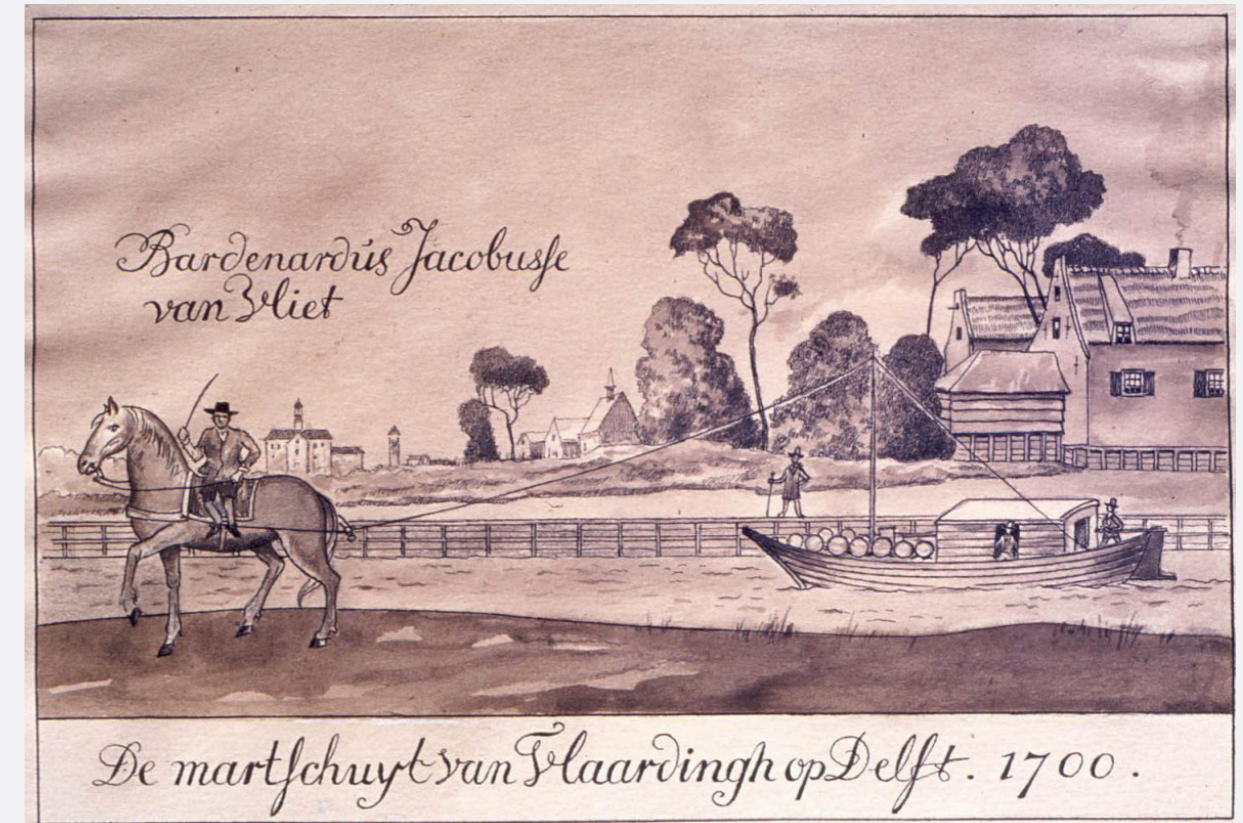 Bardenardus Jacobusse
van Vliet
De martschuyt van Vlaardingh op Delft. 1700.